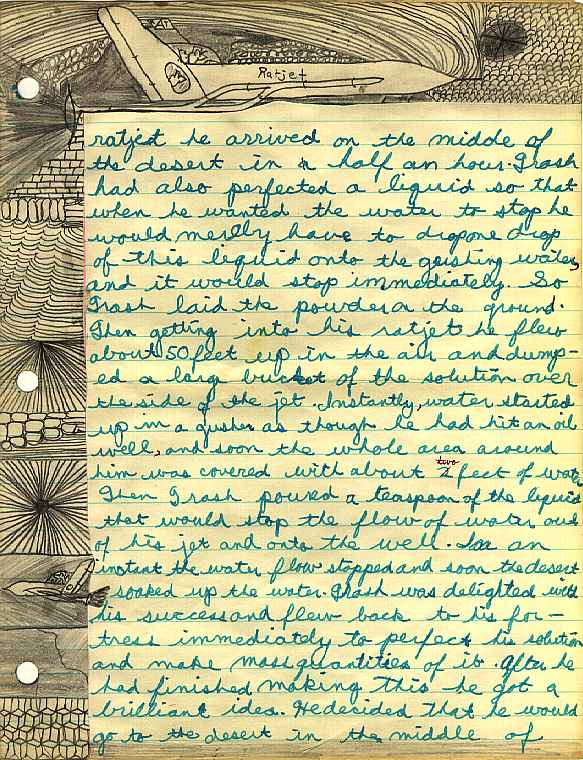 Ratjet
ratjet he arrived on the middle of
the desert in a half an hour. Trash
had also perfected a liquid so that
when he wanted the water to stop he
would merlly have to drop one drop
of this liquid onto the geisting water,
and it would stop immediately. So
Trash laid the powder on the ground.
Then getting into his ratjet he flew
about 50 feet up in the air and dump-
ed a large bucket of the solution over
the side of the jet. Instantly, water started
up in a gusher as though he had hit an oil
well, and soon the whole area around
him was covered with about two feet of water
Then Trash poured a teaspoon of the liquid
that would stop the flow of water out
of his jet and onto the well. In an
instant the water flow stopped and soon the desert
soaked up the water. Trash was delighted with
his success and flew back to his for-
tress immediately to perfect his solution
and make mass quantities of it. After he
had finished making this he got a
brilliant idea. He decided that he would
go to the desert in the middle of